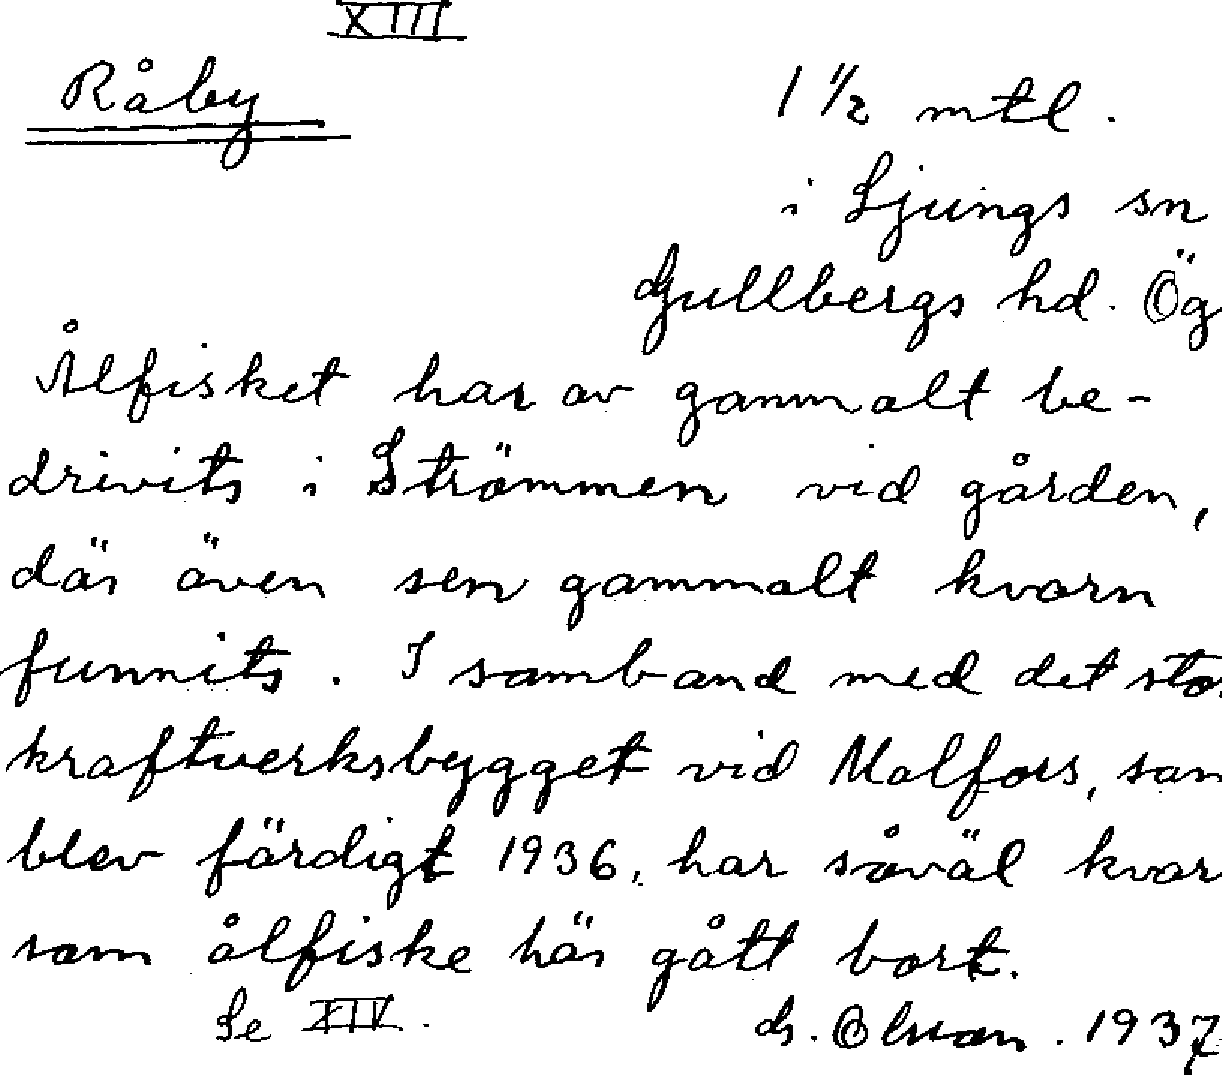 XIII
Råby
1 1/2 mtl.
i Ljungs sn
Gullbergs hd. Ög
Ålfisket har av gammalt be-
drivits i Strömmen vid gården,
där även sen gammalt kvarn
funnits. I samband med det sto
kraftverksbygget vid Malfors, som
blev färdigt 1936, har såväl kvar
som ålfiske här gått bort.
Se XIV.
G. Olson. 1937